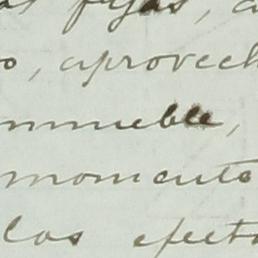 fijas,
o, aprovech
nmueble,
momento
los efecto